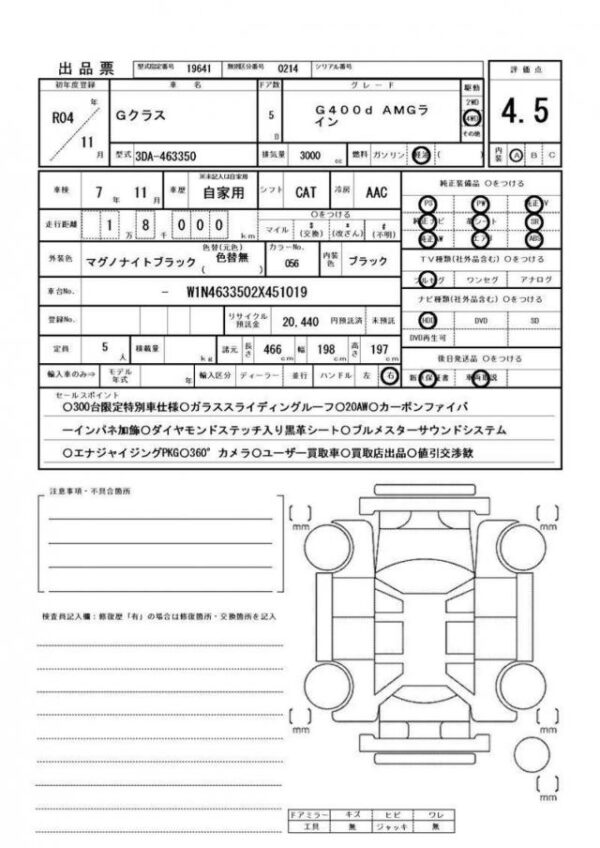 出品票 型式指定番号 19641 類別区分番号 0214 シリアル番号
初年度登録 車 名 ドア数 グレード 駆動 評価点
R04 年 11 月 Gクラス 5 D G400d AMGライン 2WD 4WD その他 4.5
型式 3DA-463350 排気量 3000 cc 燃料 ガソリン 軽油 ( 内装 A B C
車検 7 年 11 月 車歴 ※未記入は自家用 自家用 シフト CAT 冷房 AAC 純正装備品 ○をつける
PS PW 純正TV
走行距離 1 万 8 千 0 0 0 km ○をつける マイル $ (交換) * (改ざん) # (不明) 純正ナビ 革シート SR
純正AW エアB ABS
外装色 マグノナイトブラック 色替(元色) ( 色替無 ) カラーNo. 056 内装色 ブラック TV種類(社外品含む) ○をつける
フルセグ ワンセグ アナログ
車台No. - W1N4633502X451019 ナビ種類(社外品含む) ○をつける
登録No. リサイクル預託金 20,440 円預託済 未預託 HDD DVD SD
DVD再生可
定員 5 人 積載量 kg 諸元 長さ 466 cm 幅 198 cm 高さ 197 cm 後日発送品 ○をつける
輸入車のみ⇒ モデル年式 年 輸入区分 ディーラー 並行 ハンドル 左 右 新車保証書 車両取説
セールスポイント
○300台限定特別車仕様○ガラススライディングルーフ○20AW○カーボンファイバ
ーインパネ加飾○ダイヤモンドステッチ入り黒革シート○ブルメスターサウンドシステム
○エナジャイジングPKG○360°カメラ○ユーザー買取車○買取店出品○値引交渉歓
注意事項・不具合箇所
[ ] mm [ ] mm
検査員記入欄:修復歴「有」の場合は修復箇所・交換箇所を記入
[ ] mm [ ] mm
[ ] mm
ドアミラー キズ ヒビ ワレ
工具 無 ジャッキ 無